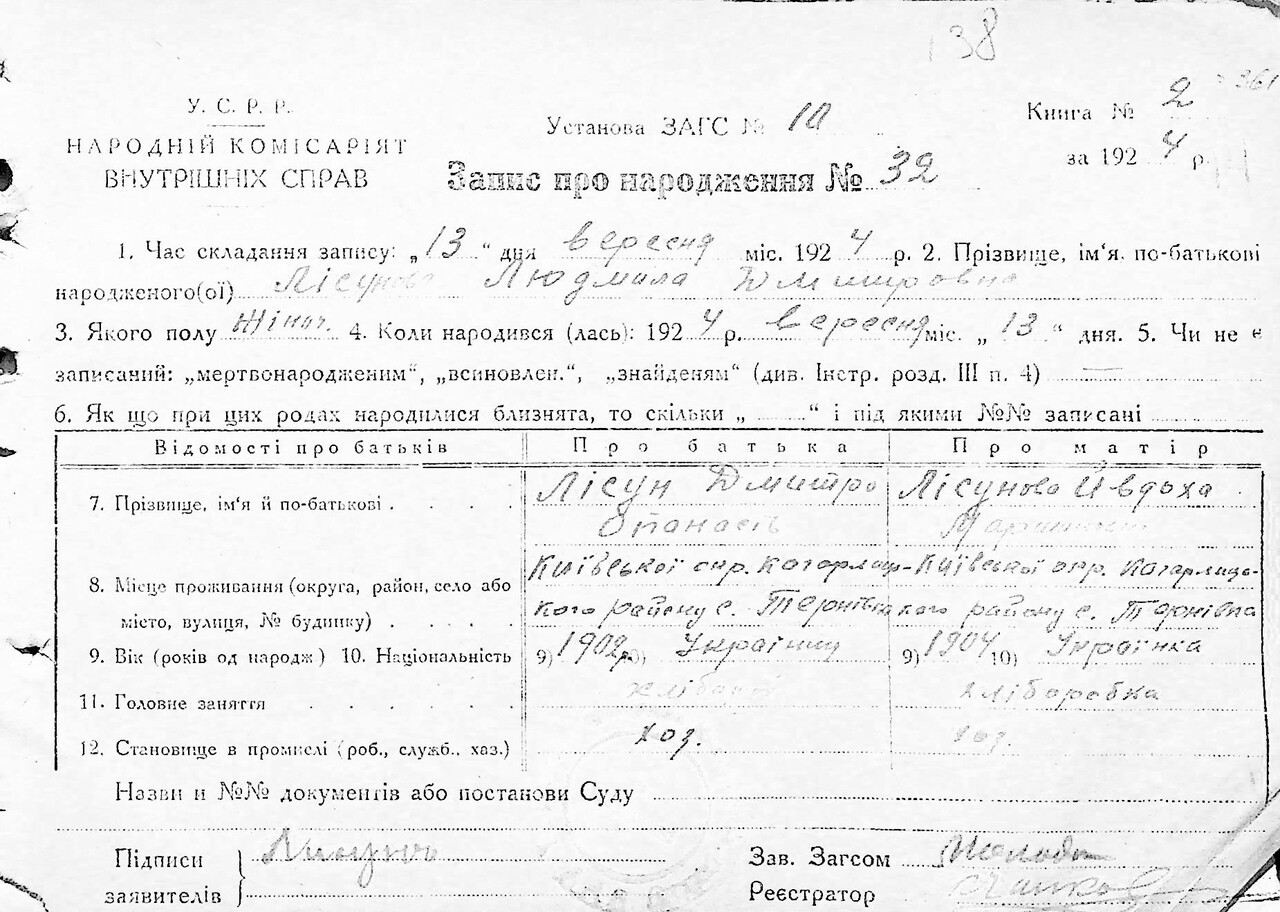 138
361
У. С. Р. Р.
НАРОДНІЙ КОМІСАРІЯТ
ВНУТРІШНІХ СПРАВ
Установа ЗАГС № 10
Книга № 2
за 1924 р.
Запис про народження № 32
1. Час складання запису: „13“ дня вересня міс. 1924 р. 2. Прізвище, ім‘я, по-батькові
народженого(ої) Лісунова Людмила Дмитровна
3. Якого полу Жіноч. 4. Коли народився (лась): 1924 р. вересня міс. „13“ дня. 5. Чи не є
записаний: „мертвонародженим“, „всиновлен.“, „знайденям“ (див. Інстр. розд. III п. 4) —
6. Як що при цих родах народилися близнята, то скільки „ “ і під якими №№ записані
Відомості про батьків Про батька Про матір
7. Прізвище, ім‘я й по-батькові Лісун Дмитро Лісунова Йвдоха
8. Місце проживання (округа, район, село або Київської окр. Кагарлиц- Київської окр. Кагарлиць-
місто, вулиця, № будинку) кого району с. Тернівка кого району с. Тернівка
9. Вік (років од народж) 10. Національність 9) 1902 р. 10) Українець 9) 1904 10) Українка
11. Головне заняття хліборобка
12. Становище в промислі (роб., служб., хаз.) хоз. хоз.
Назви и №№ документів або постанови Суду
Підписи
заявителів
Зав. Загсом
Реєстратор